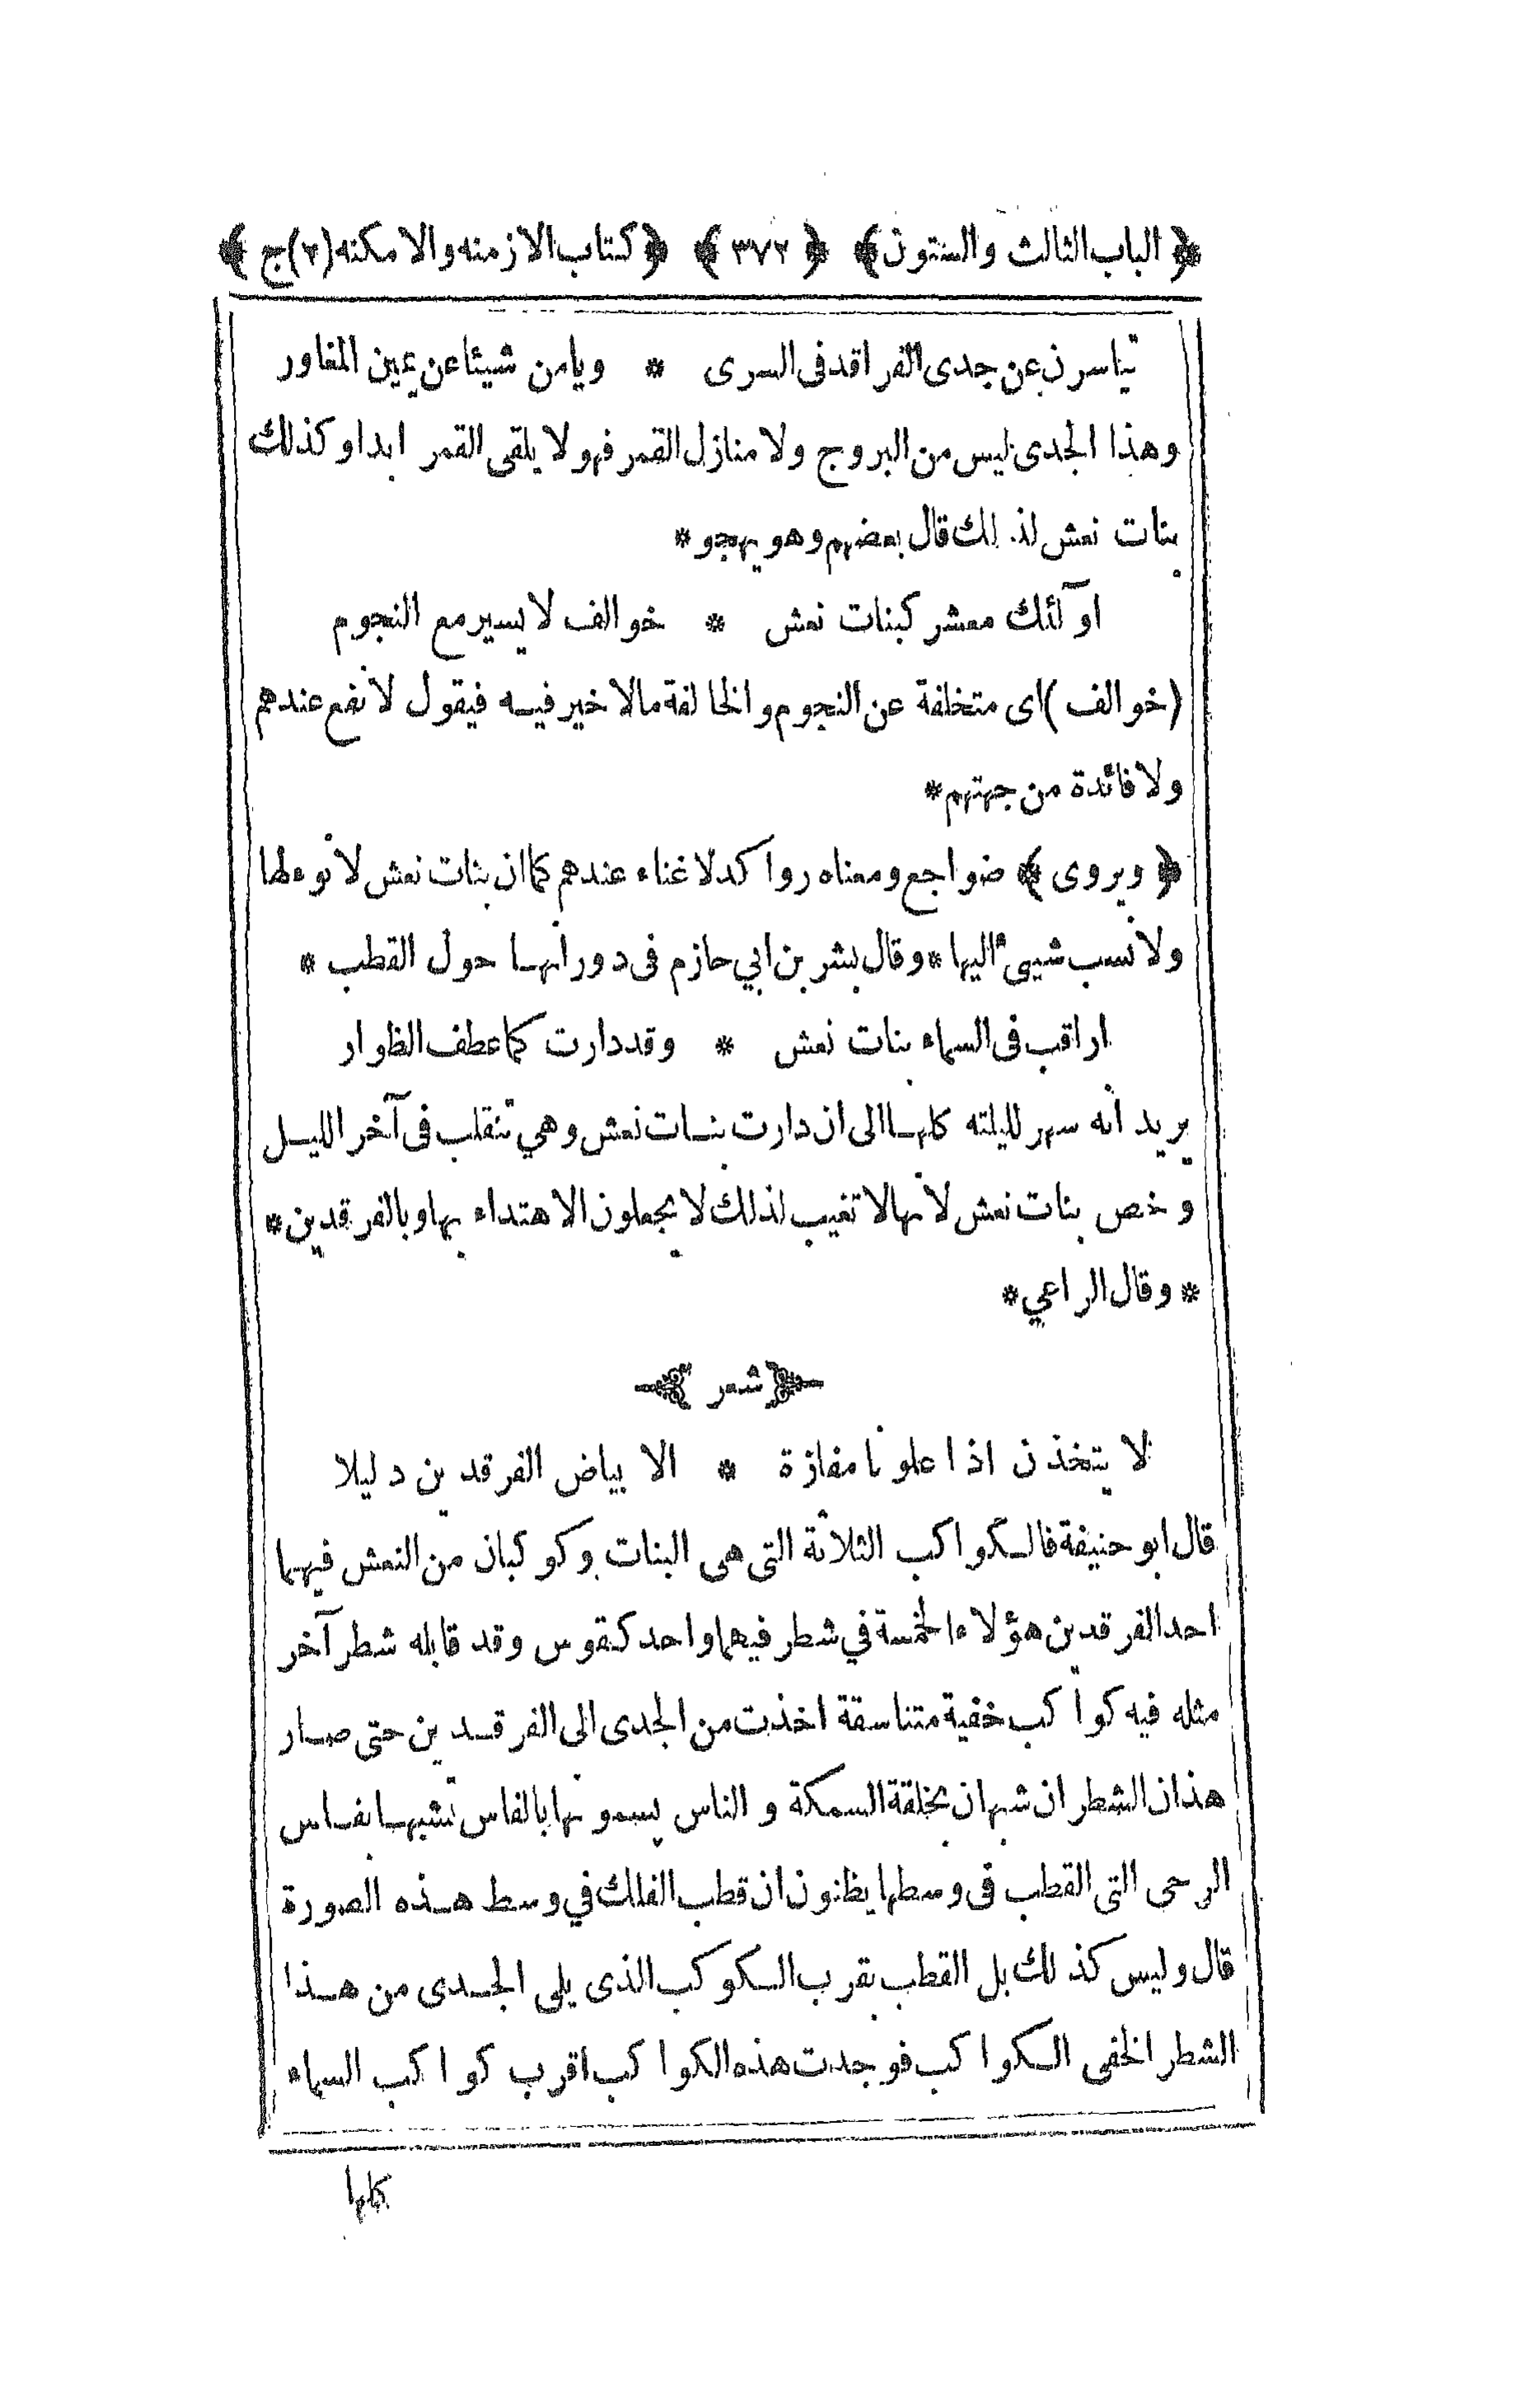 ﴿ الباب الثالث والستون﴾ ﴿ ٣٧٢ ﴾ ﴿ كتاب الازمنه والامكنه(٢)ج ﴾
تياسرن عن جدى الفراقد فى السرى * ويامن شيئا عن يمين المغاور
وهذا الجدى ليس من البروج ولا منازل القمر فهو لا يلقى القمر ابدا وكذلك
بنات نعش لذلك قال بعضهم وهو يهجو *
اوآلئك معشر كبنات نعش * خوالف لا يسير مع النجوم
(خوالف) اى متخلفة عن النجوم والخالفة مالا خير فيه فيقول لا نفع عندهم
ولا فائدة من جهتهم *
﴿ ويروى ﴾ ضواجع ومعناه رواكد لا غناء عندهم كما ان بنات نعش لا نوء لها
ولا نسب شيئ اليها * وقال بشر بن ابي حازم فى دورانها حول القطب *
اراقب فى السماء بنات نعش * وقد دارت كما عطف الظوار
يريد انه سهر لليلته كلها الى ان دارت بنات نعش وهي تنقلب فى آخر الليل
وخص بنات نعش لانها لا تغيب لذلك لا يجعلون الاهتداء بها وبالفرقدين *
* وقال الراعي *
﴿ شعر ﴾
لا يتخذن اذا علونا مفازة * الا بياض الفرقدين دليلا
قال ابو حنيفة فالكواكب الثلاثة التى هى البنات وكوكبان من النعش فيهما
احد الفرقدين هؤلاء الخمسة في شطر فيهما واحد كقوس وقد قابله شطر آخر
مثله فيه كواكب خفية متناسقة اخذت من الجدى الى الفرقدين حتى صار
هذان الشطران شبهان بخلقة السمكة و الناس يسمونها بالفاس تشبها بفاس
الرحى التى القطب فى وسطها يظنون ان قطب الفلك في وسط هذه الصورة
قال وليس كذلك بل القطب بقرب الكوكب الذى يلى الجدى من هذا
الشطر الخفى الكواكب فوجدت هذه الكواكب اقرب كواكب السماء
كلها